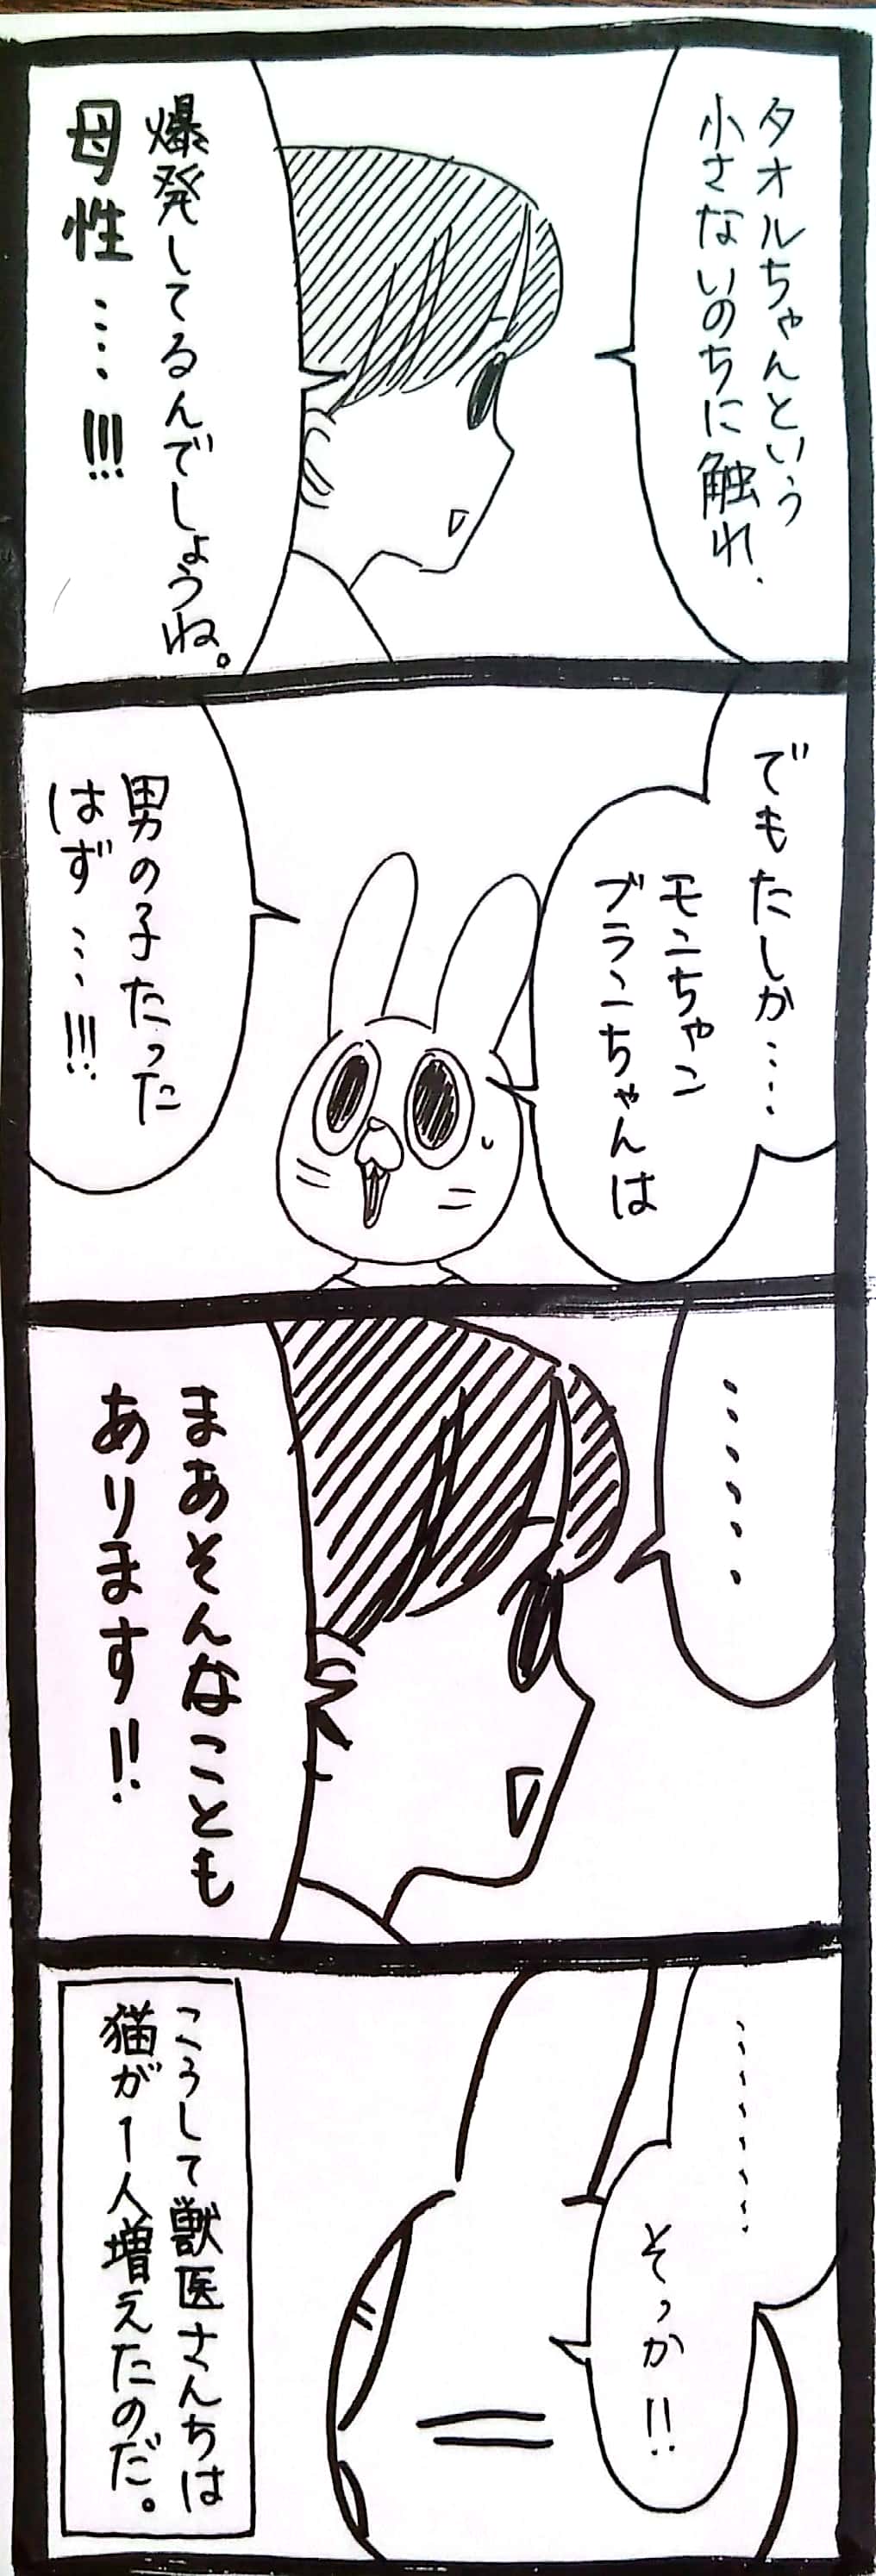 タオルちゃんという
小さないのちに触れ、
爆発してるんでしょうね。
母性…!!!
でもたしか…
モンちゃん
ブランちゃんは
男の子だった
はず…!!!
……
まあそんなことも
あります!!
………
そっか!!
こうして獣医さんちは
猫が1人増えたのだ。